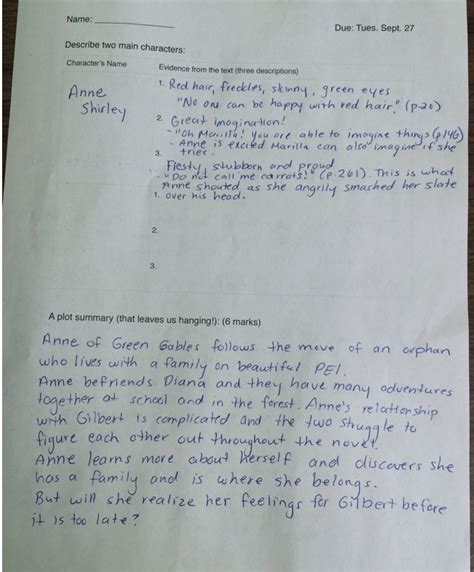 Name:
Due: Tues. Sept. 27
Describe two main characters:
Character's Name
Evidence from the text (three descriptions)
Anne
Shirley
1. Red hair, freckles, skinny, green eyes
"No one can be happy with red hair." (p.20)
2. Great imagination!
- "Oh Marilla! You are able to imagine things (p.146)
- Anne is excited Marilla can also imagine if she
3. tries.
Fiesty, stubborn and proud
- "Do not call me carrots!" (p.261). This is what
Anne shouted as she angrily smashed her slate
1. over his head.
2.
3.
A plot summary (that leaves us hanging!): (6 marks)
Anne of Green Gables follows the move of an orphan
who lives with a family on beautiful PEI.
Anne befriends Diana and they have many adventures
together at school and in the forest. Anne's relationship
with Gilbert is complicated and the two struggle to
figure each other out throughout the novel.
Anne learns more about herself and discovers she
has a family and is where she belongs.
But will she realize her feelings for Gilbert before
it is too late?